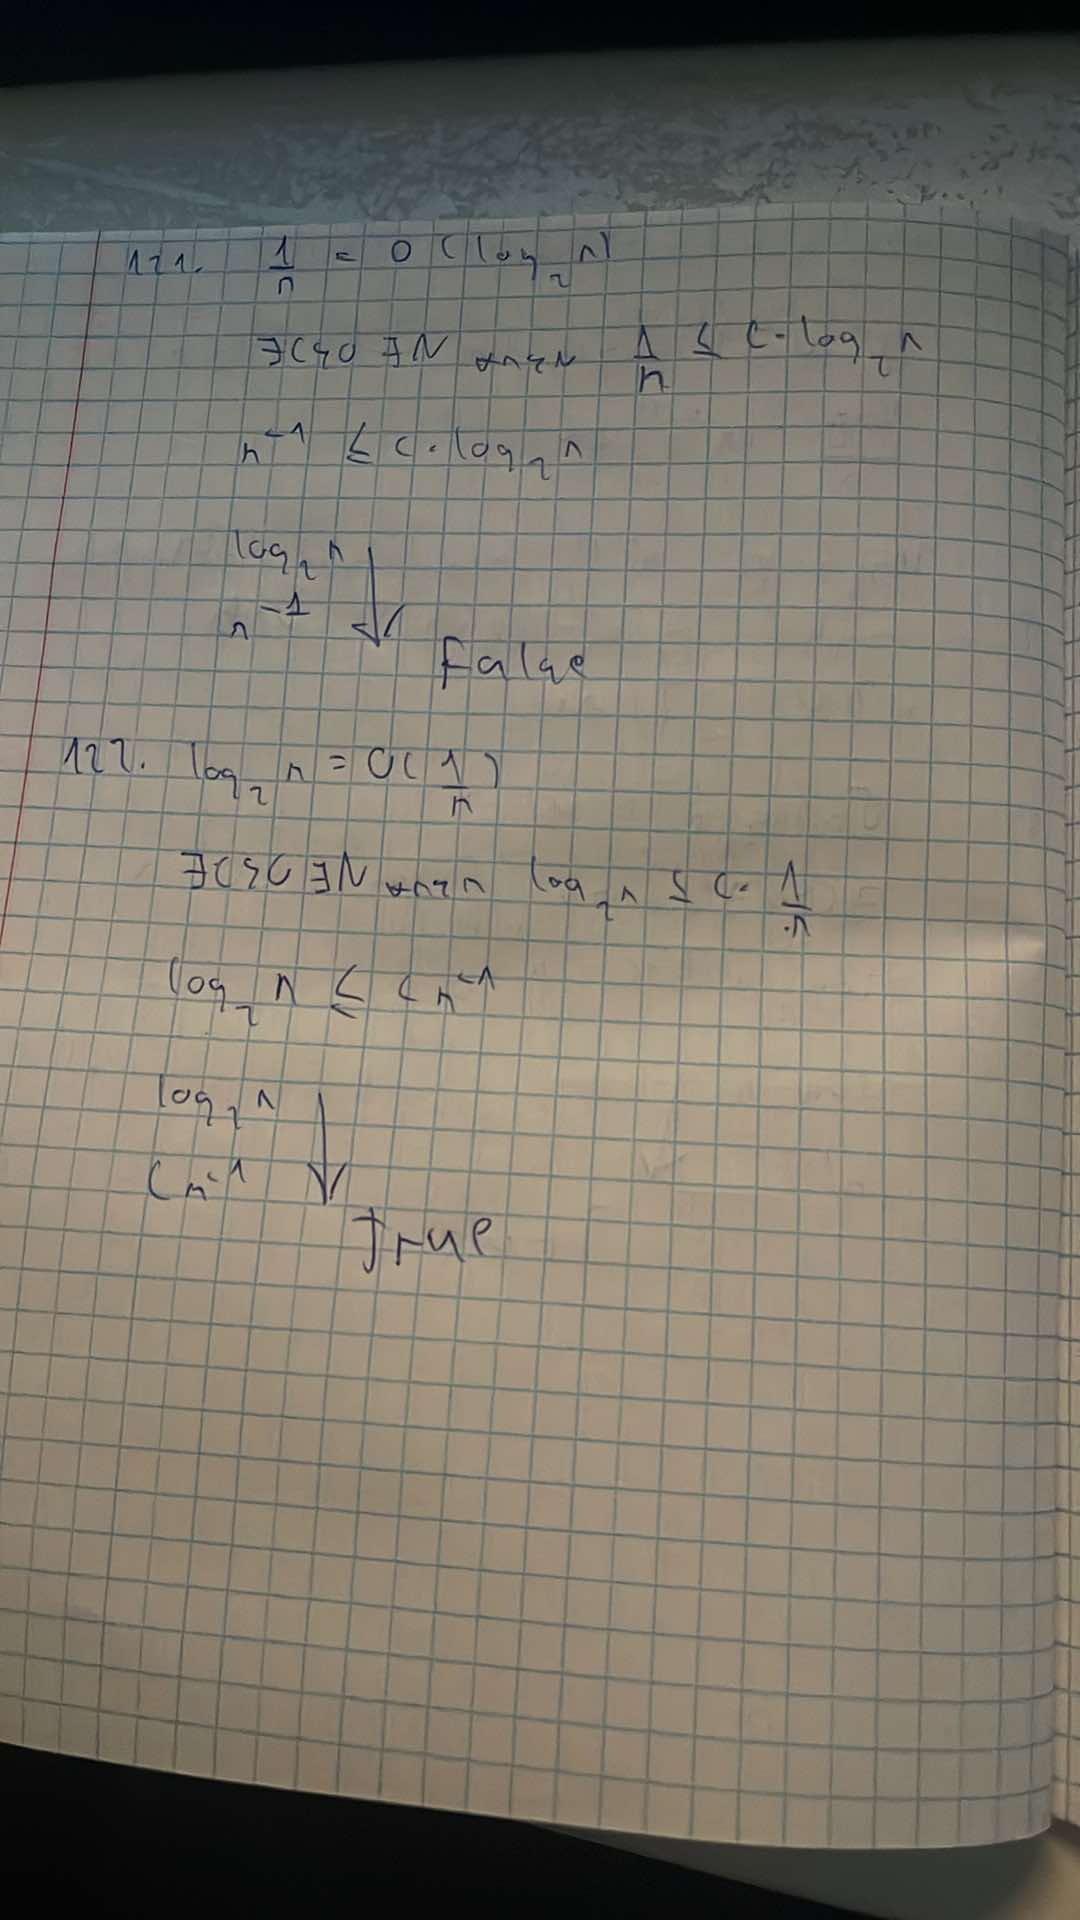 121. 1/n = O(log₂ n)
∃C>0 ∃N ∀n≥N 1/n ≤ C·log₂ n
n⁻¹ ≤ C·log₂ n
log₂ n
n⁻¹
False
122. log₂ n = O(1/n)
∃C>0 ∃N ∀n≥N log₂ n ≤ C·1/n
log₂ n ≤ Cn⁻¹
log₂ n
Cn⁻¹
True